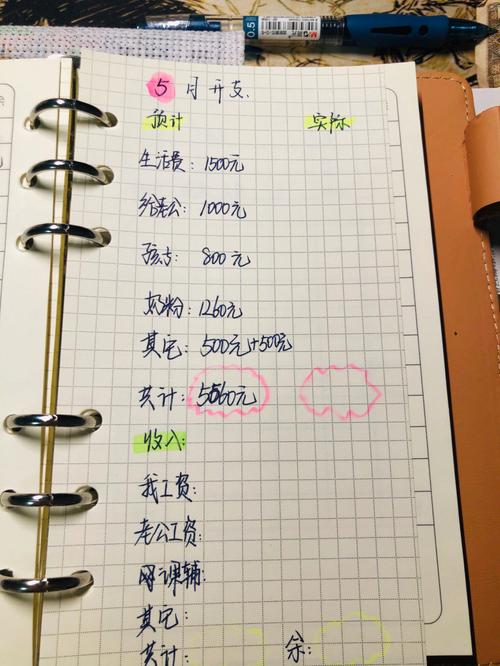 0.5
M&G
5月开支.
预计 实际
生活费：1500元
给老公：1000元
孩子：800元
奶粉：1260元
其它：500元+500元
共计：5560元
收入：
我工资：
老公工资：
网课辅：
其它：
共计： 余：